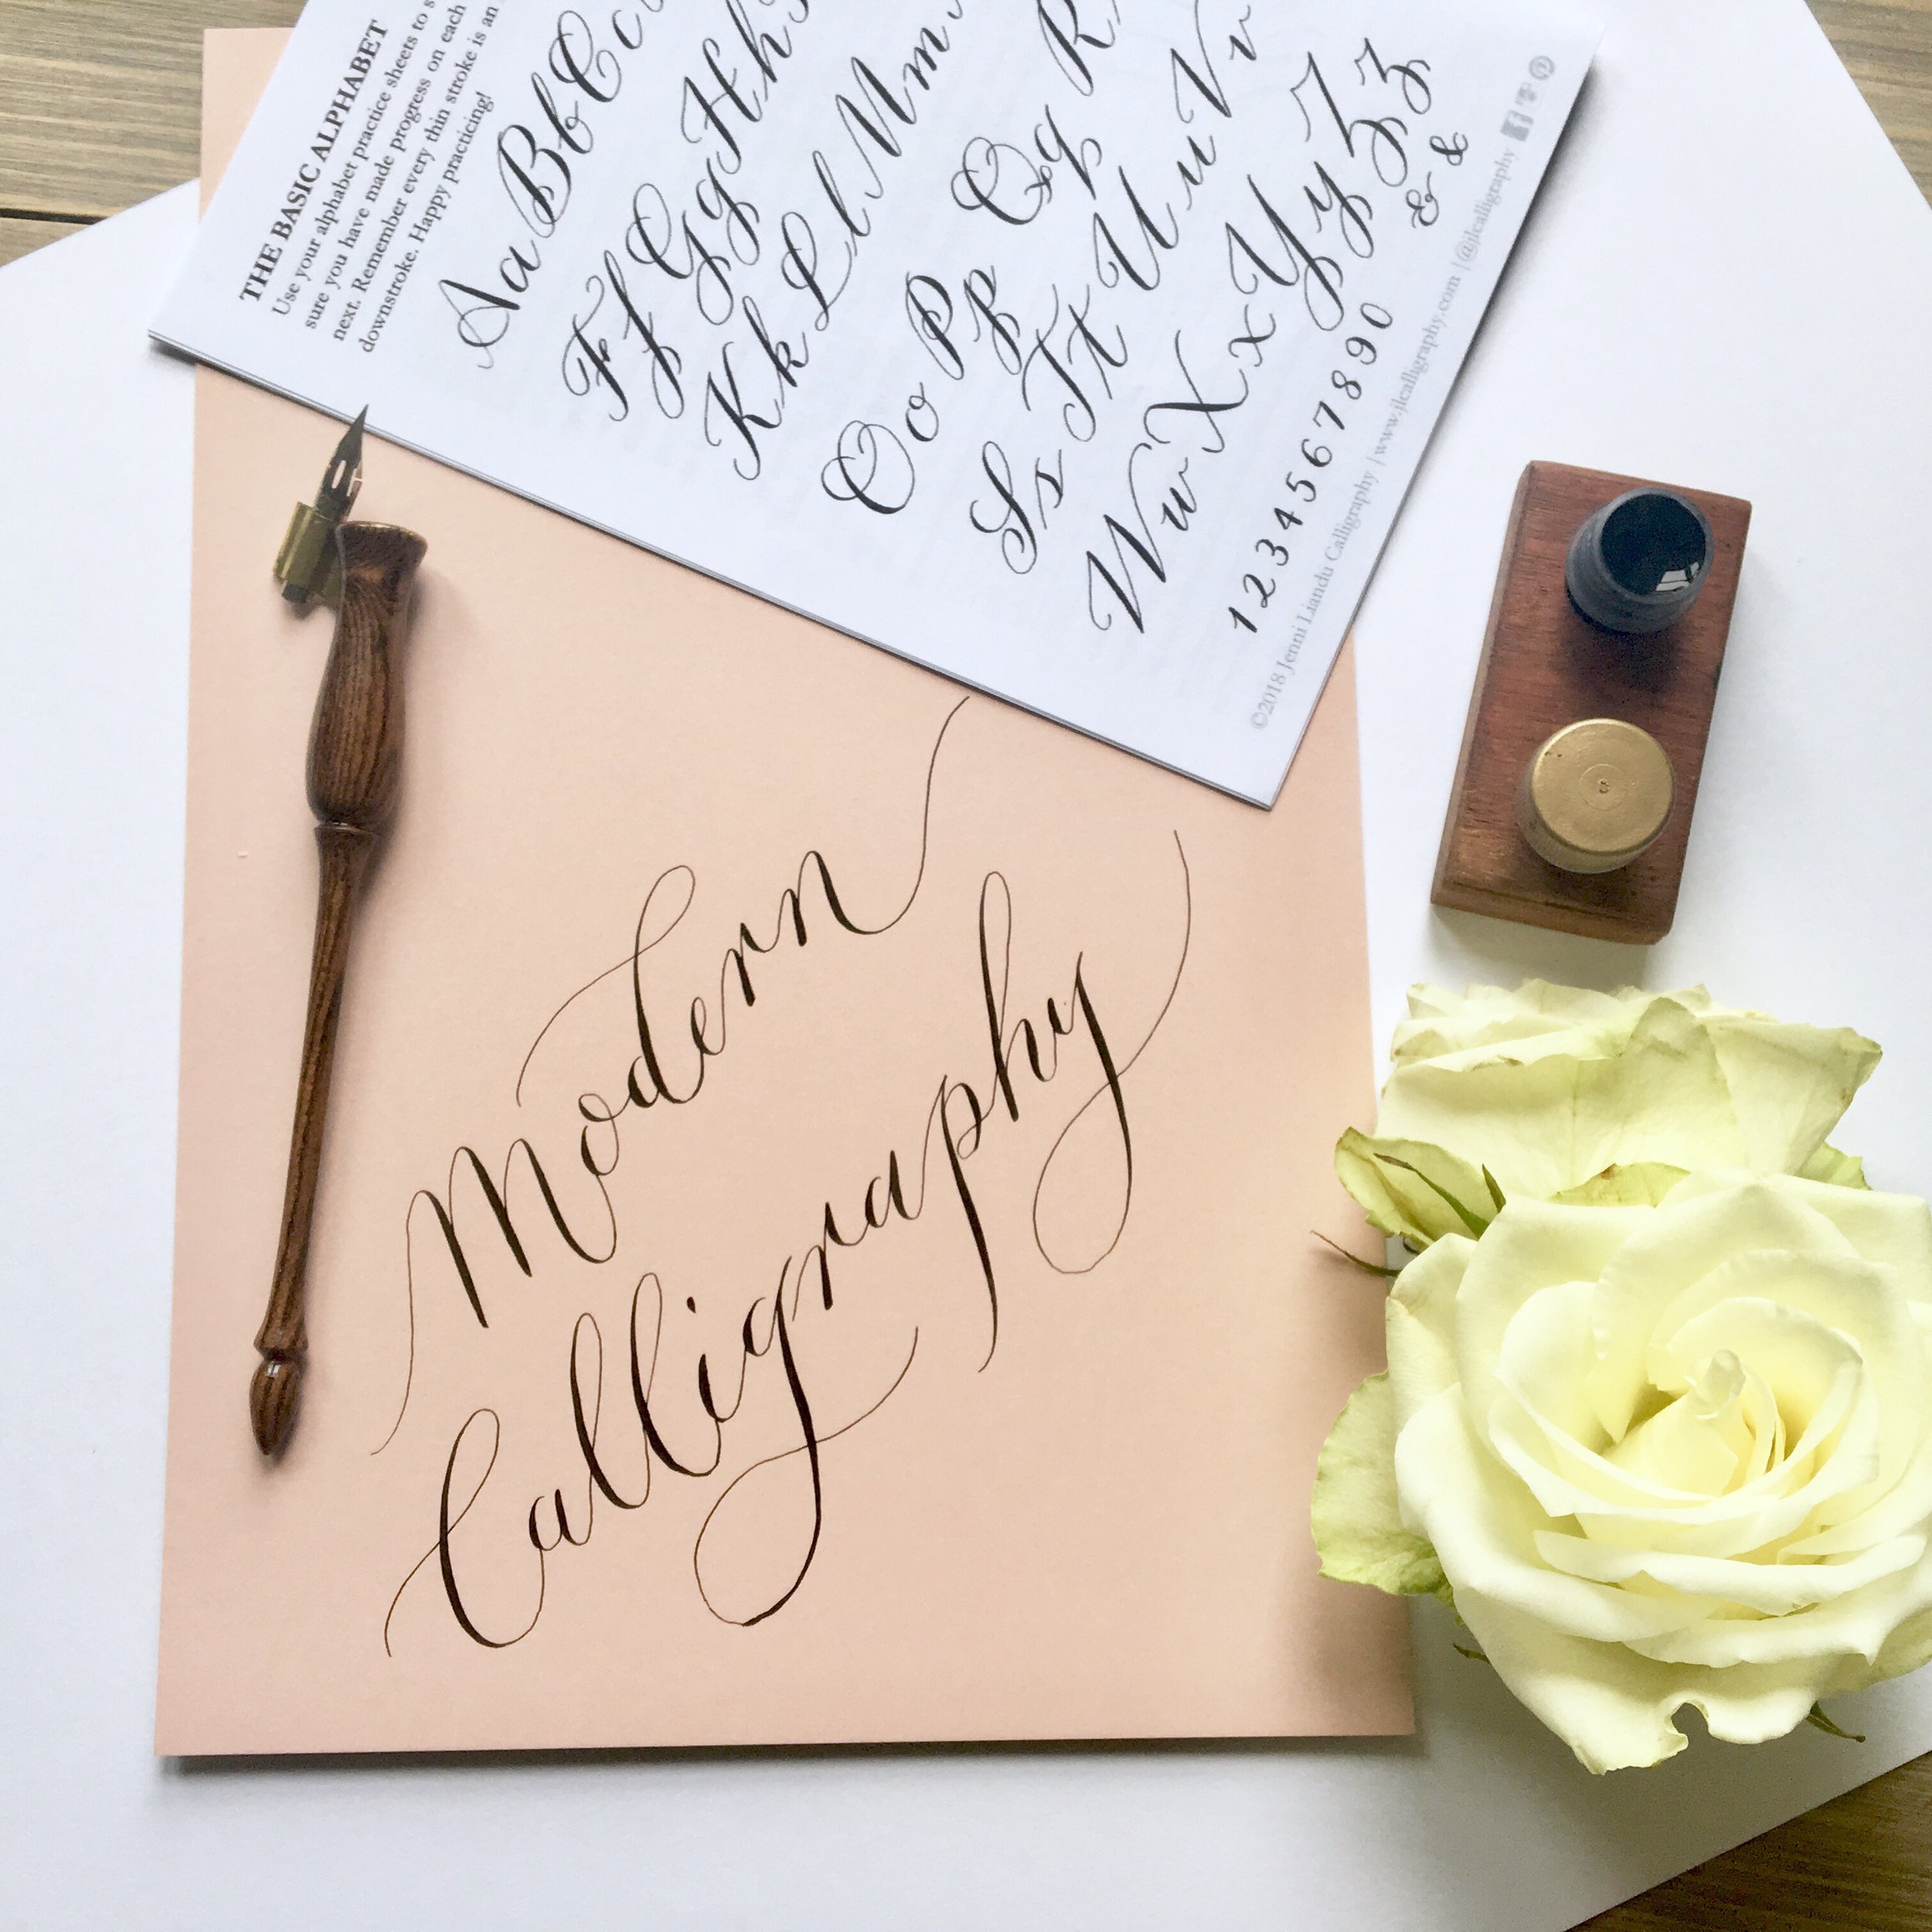 THE BASIC ALPHABET
Use your alphabet practice sheets to
sure you have made progress on each
next. Remember every thin stroke is an
downstroke. Happy practicing!
Aa Bb Cc
Ff Gg Hh
Kk Ll Mm
Oo Pp Qq R
Ss Tt Uu Vv
Ww Xx Yy Zz
1234567890 & &
©2018 Jenni Liandu Calligraphy | www.jlcalligraphy.com | @jlcalligraphy
Modern
Calligraphy